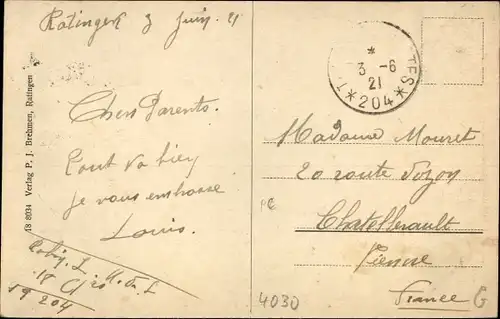 Ratingen 3 Juin 21
Chers Parents.
Tout va bien
je vous embrasse
Louis
18
SP 204
18 8034 Verlag P. J. Brehmen, Ratingen
*
3 - 6
21
* 204 *
Madame Mouret
20 route
Chatellerault
Vienne
France
4030